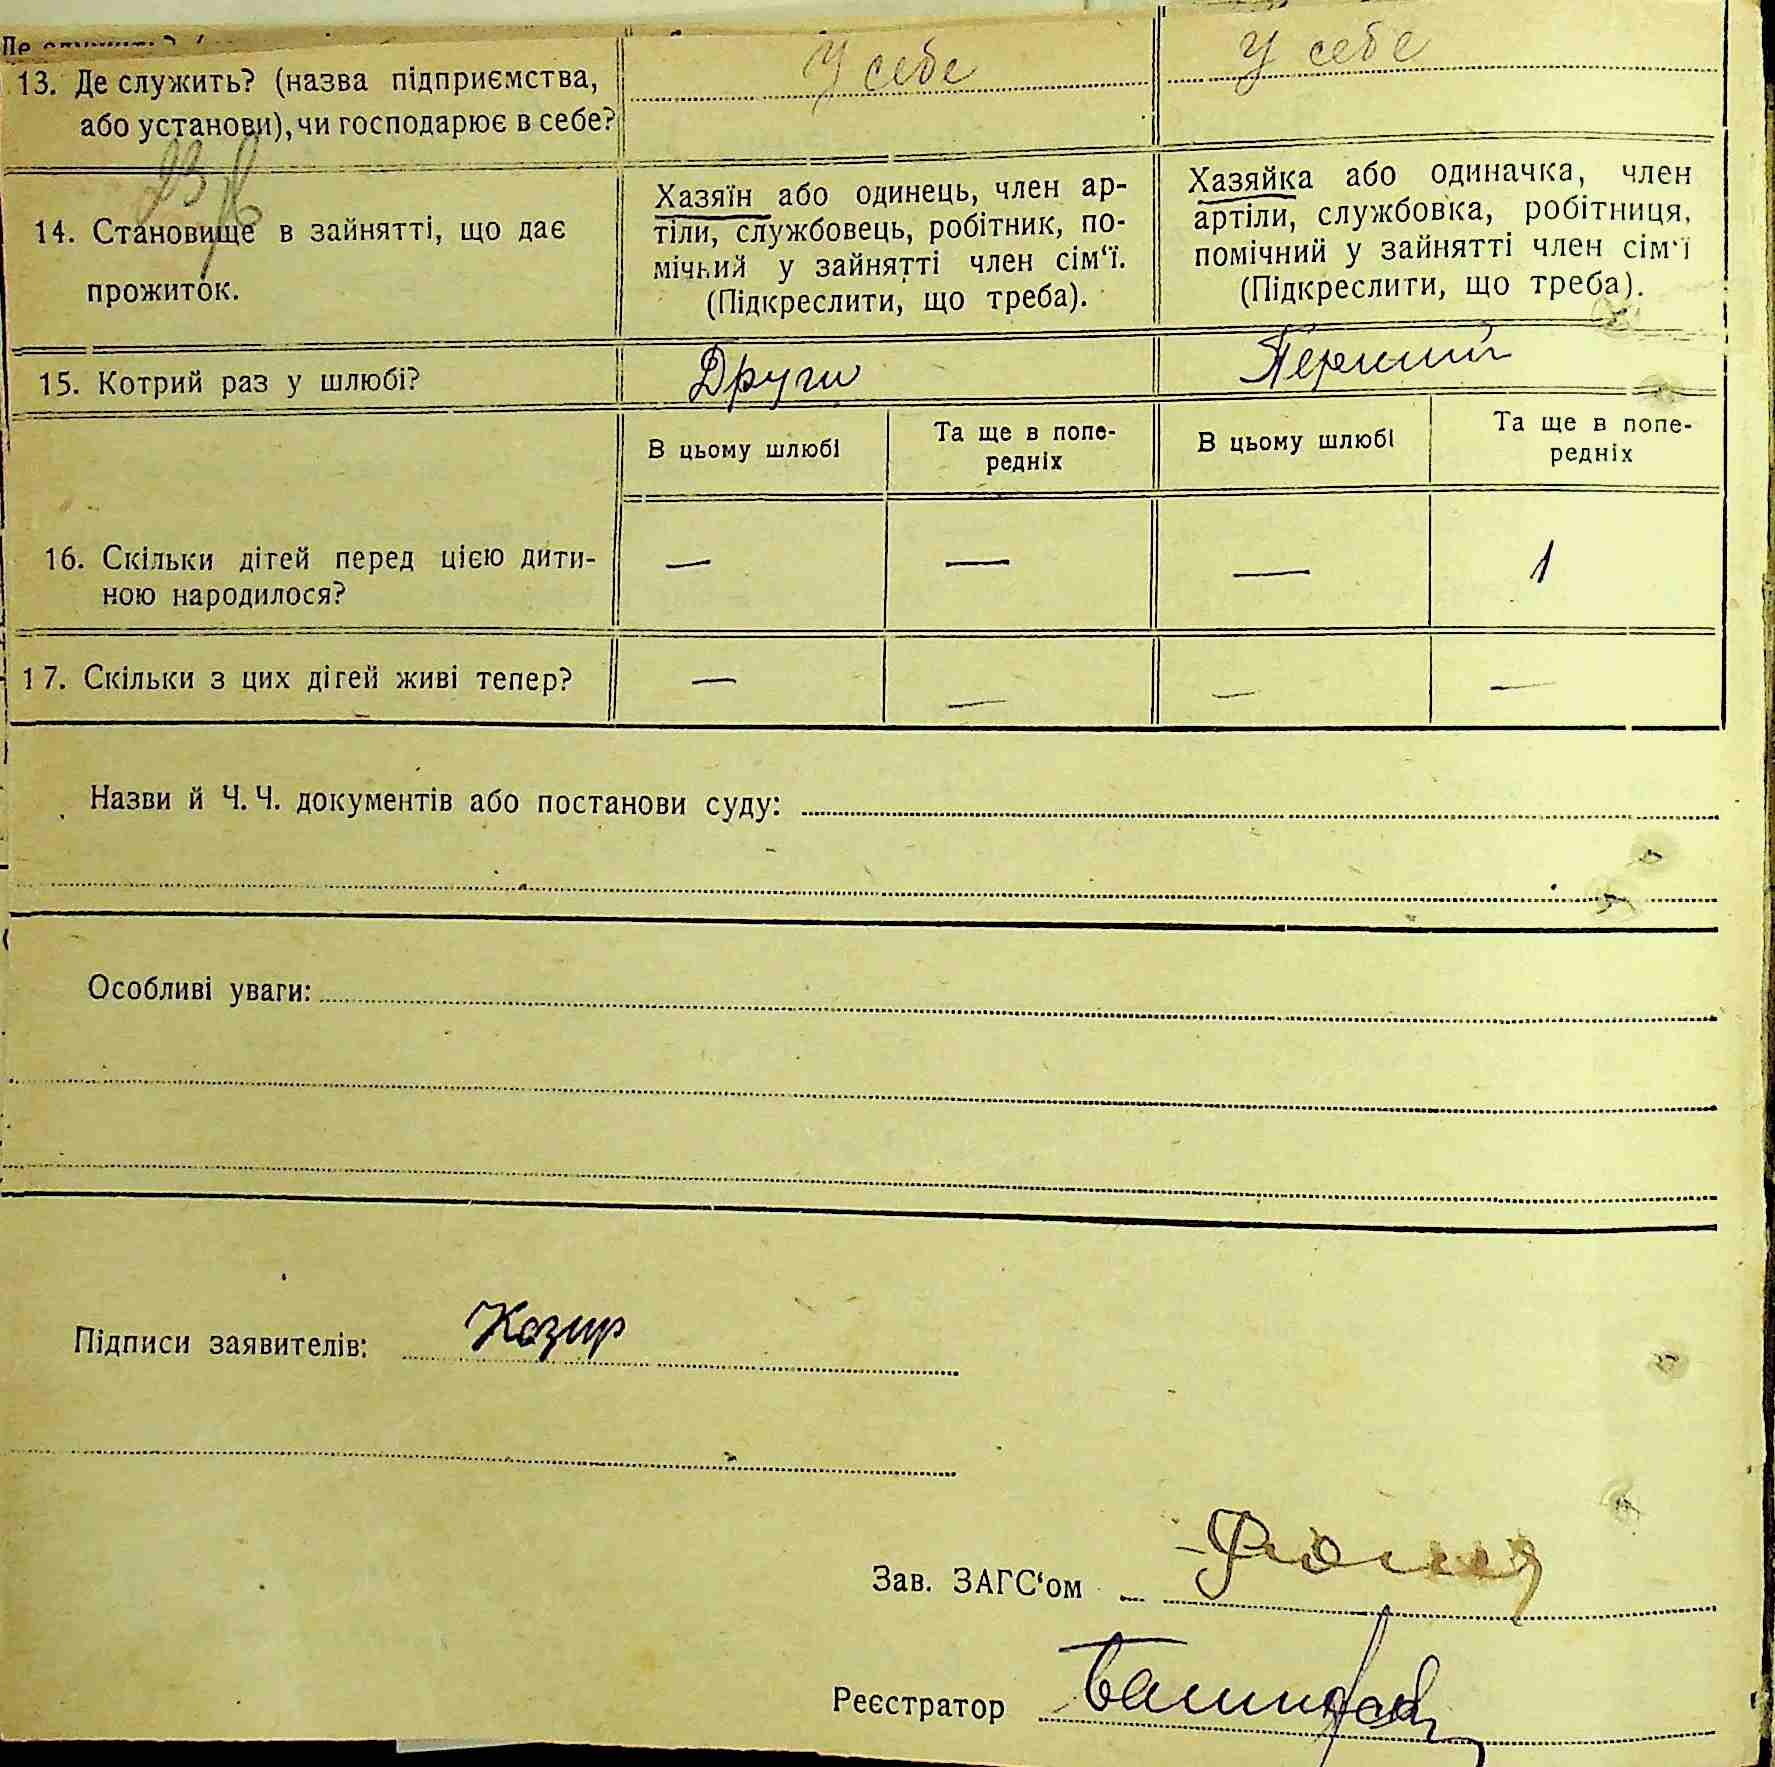 13. Де служить? (назва підприємства,
або установи), чи господарює в себе?
У себе
У себе
14. Становище в зайнятті, що дає
прожиток.
Хазяїн або одинець, член ар-
тіли, службовець, робітник, по-
мічний у зайнятті член сім‘ї.
(Підкреслити, що треба).
Хазяйка або одиначка, член
артіли, службовка, робітниця,
помічний у зайнятті член сім‘ї
(Підкреслити, що треба).
15. Котрий раз у шлюбі?
Други
Перший
В цьому шлюбі
Та ще в попе-
редніх
В цьому шлюбі
Та ще в попе-
редніх
16. Скільки дітей перед цією дити-
ною народилося?
— — — 1
17. Скільки з цих дітей живі тепер?
— — — —
Назви й Ч. Ч. документів або постанови суду:
Особливі уваги:
Підписи заявителів: Козир
Зав. ЗАГС‘ом
Реєстратор